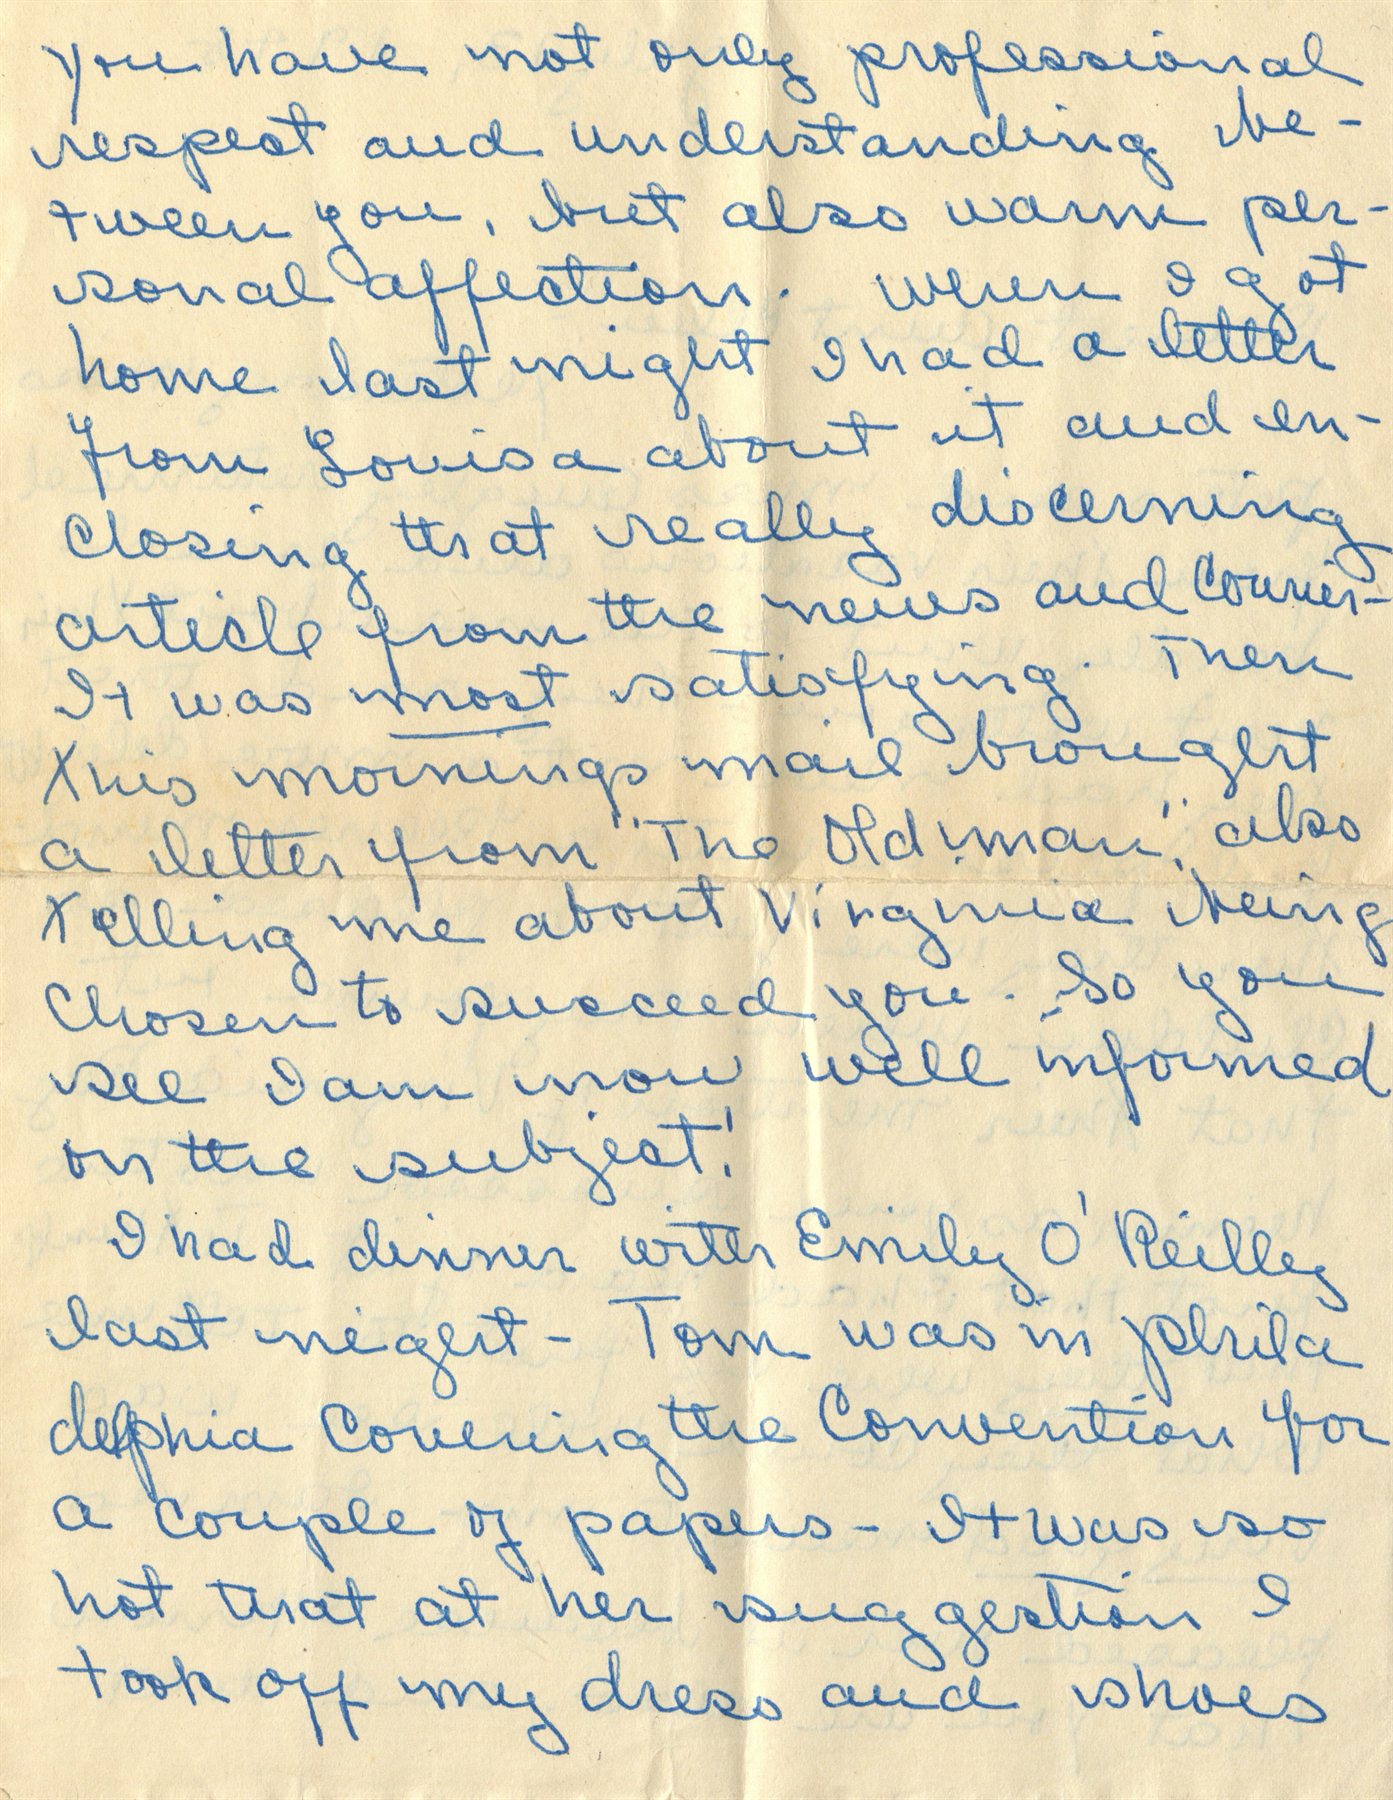 you have not only professional
respect and understanding be-
tween you, but also warm per-
sonal affection. When I got
home last night I had a letter
from Louisa about it and en-
closing that really discerning
article from the news and Courier-
It was most satisfying. Then
this mornings mail brought
a letter from "The Old man", also
telling me about Virginia being
chosen to succeed you. So you
see I am now well informed
on the subject!
I had dinner with Emily O'Reilly
last night - Tom was in Phila
delphia covering the Convention for
a couple of papers - It was so
hot that at her suggestion I
took off my dress and shoes